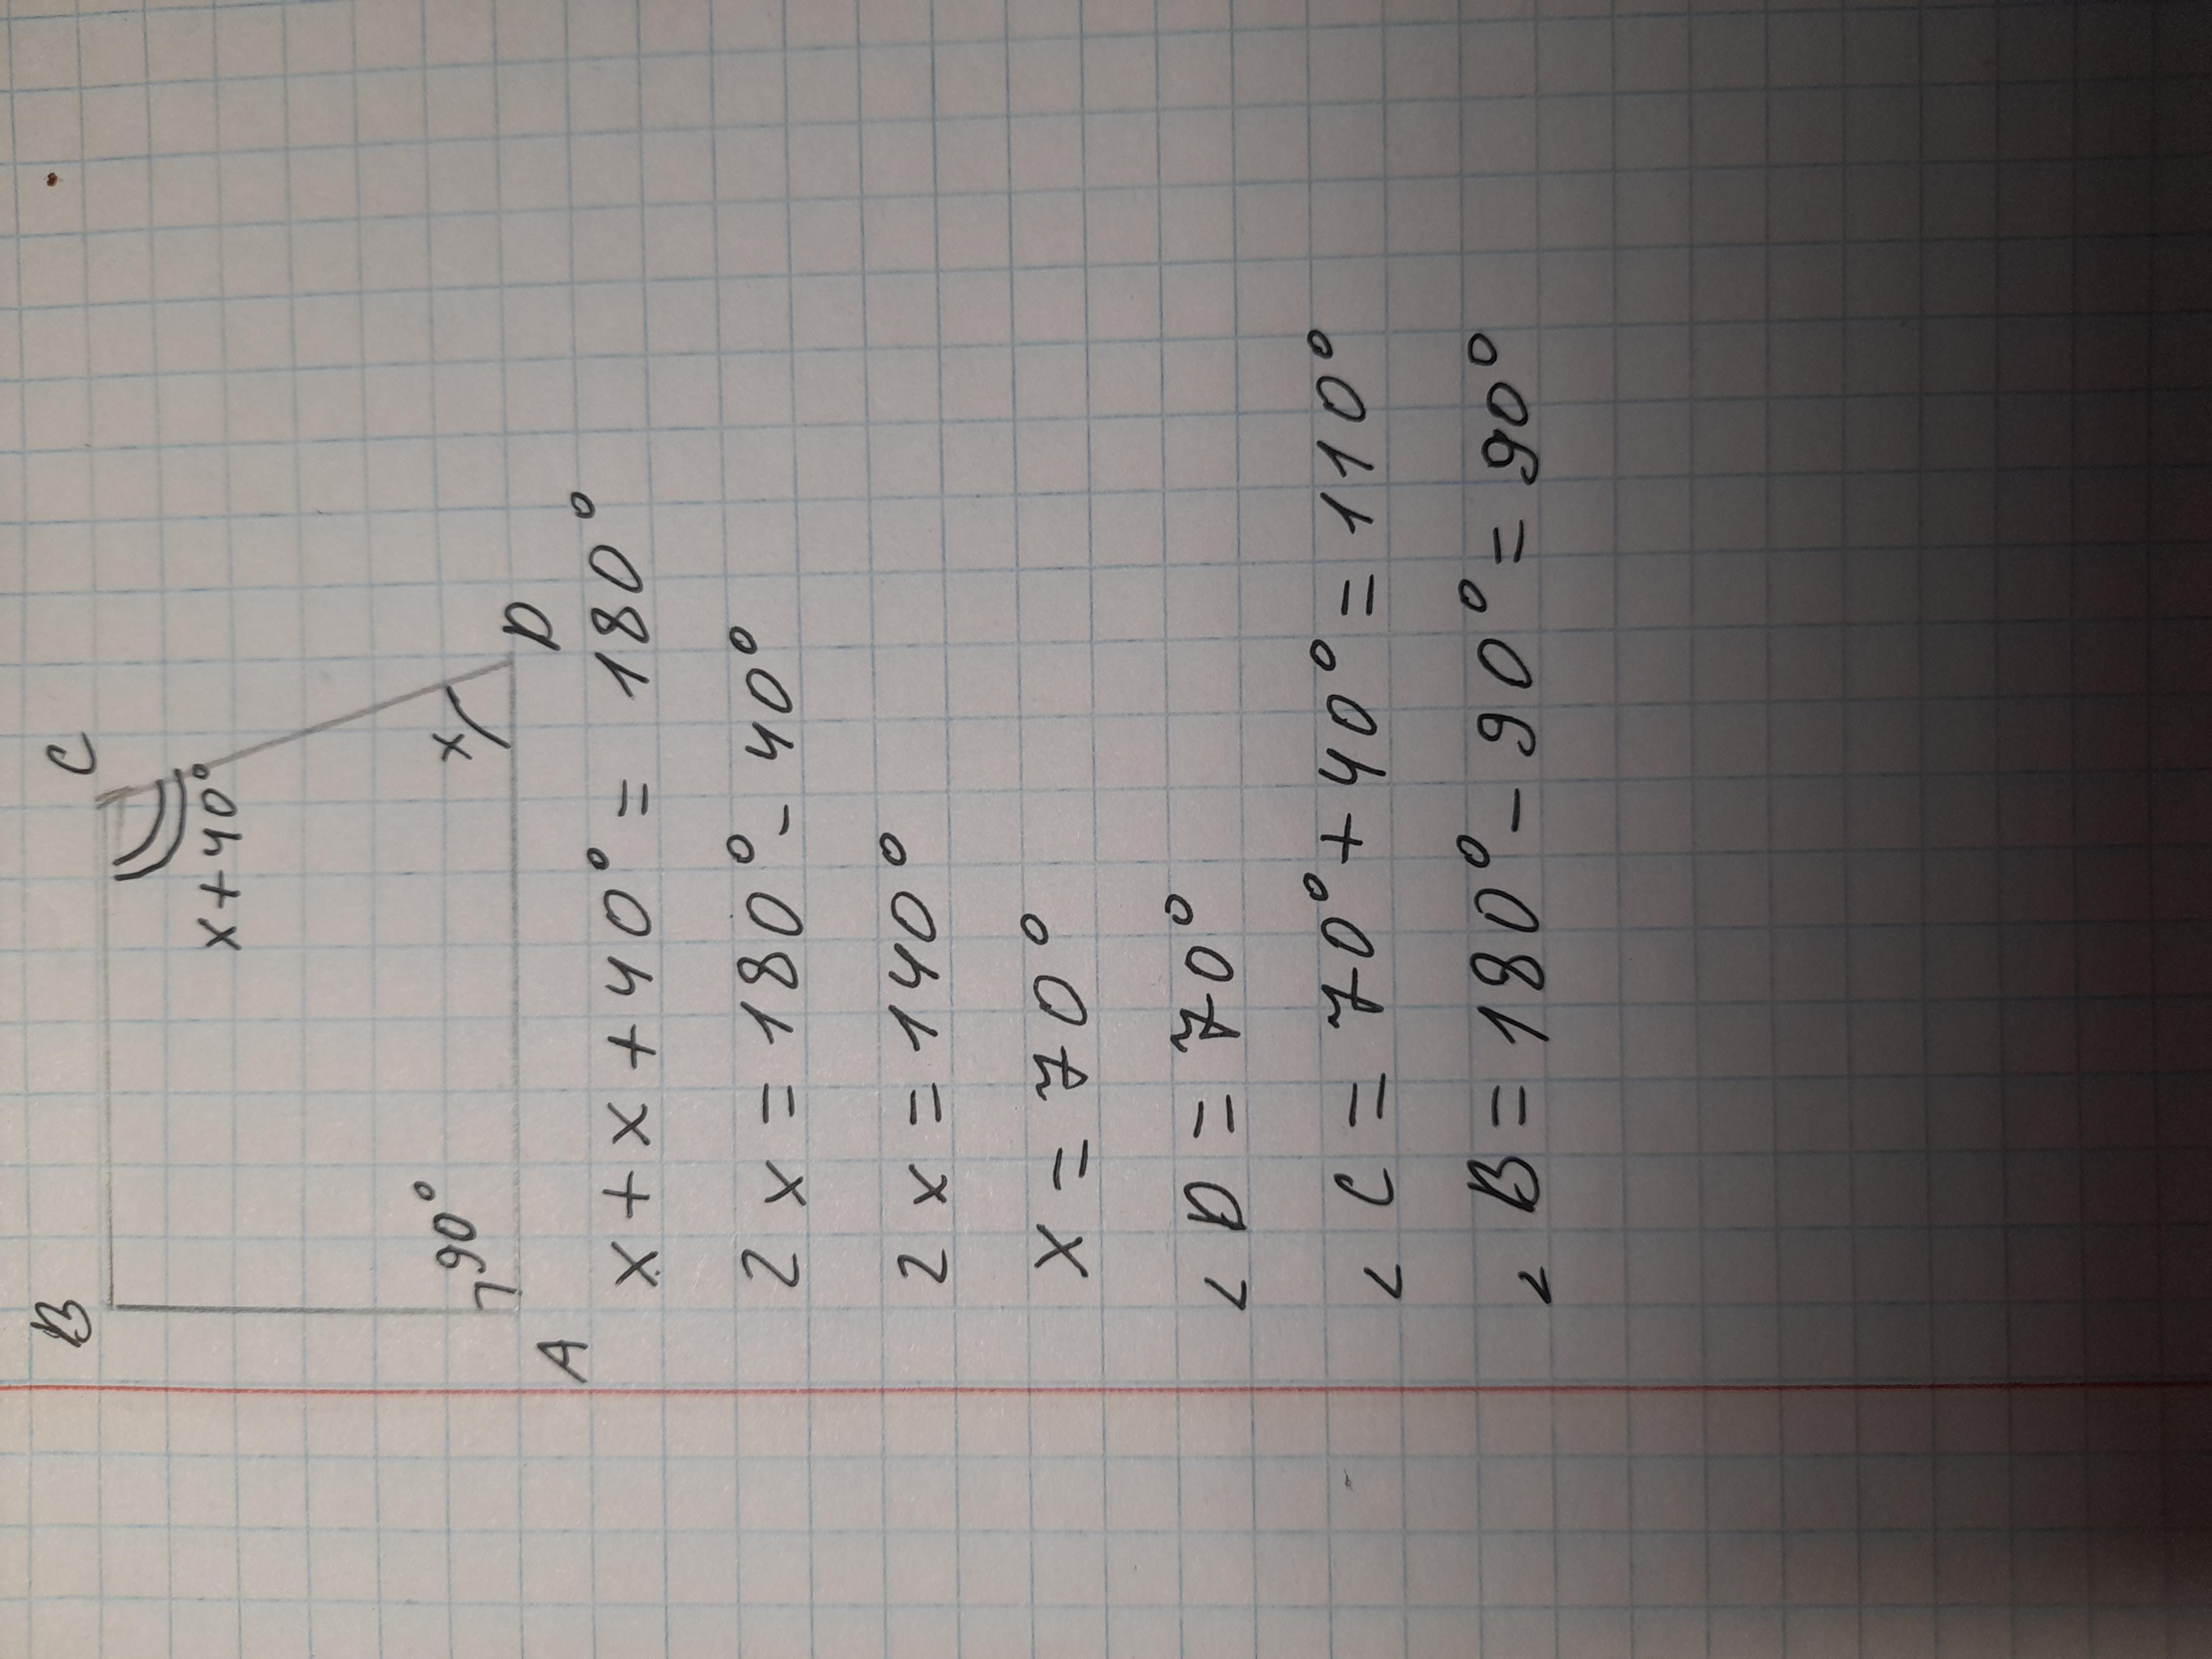 B C
x+40°
90° x
A D
x+x+40°=180°
2x=180°-40°
2x=140°
x=70°
∠D=70°
∠C=70°+40°=110°
∠B=180°-90°=90°